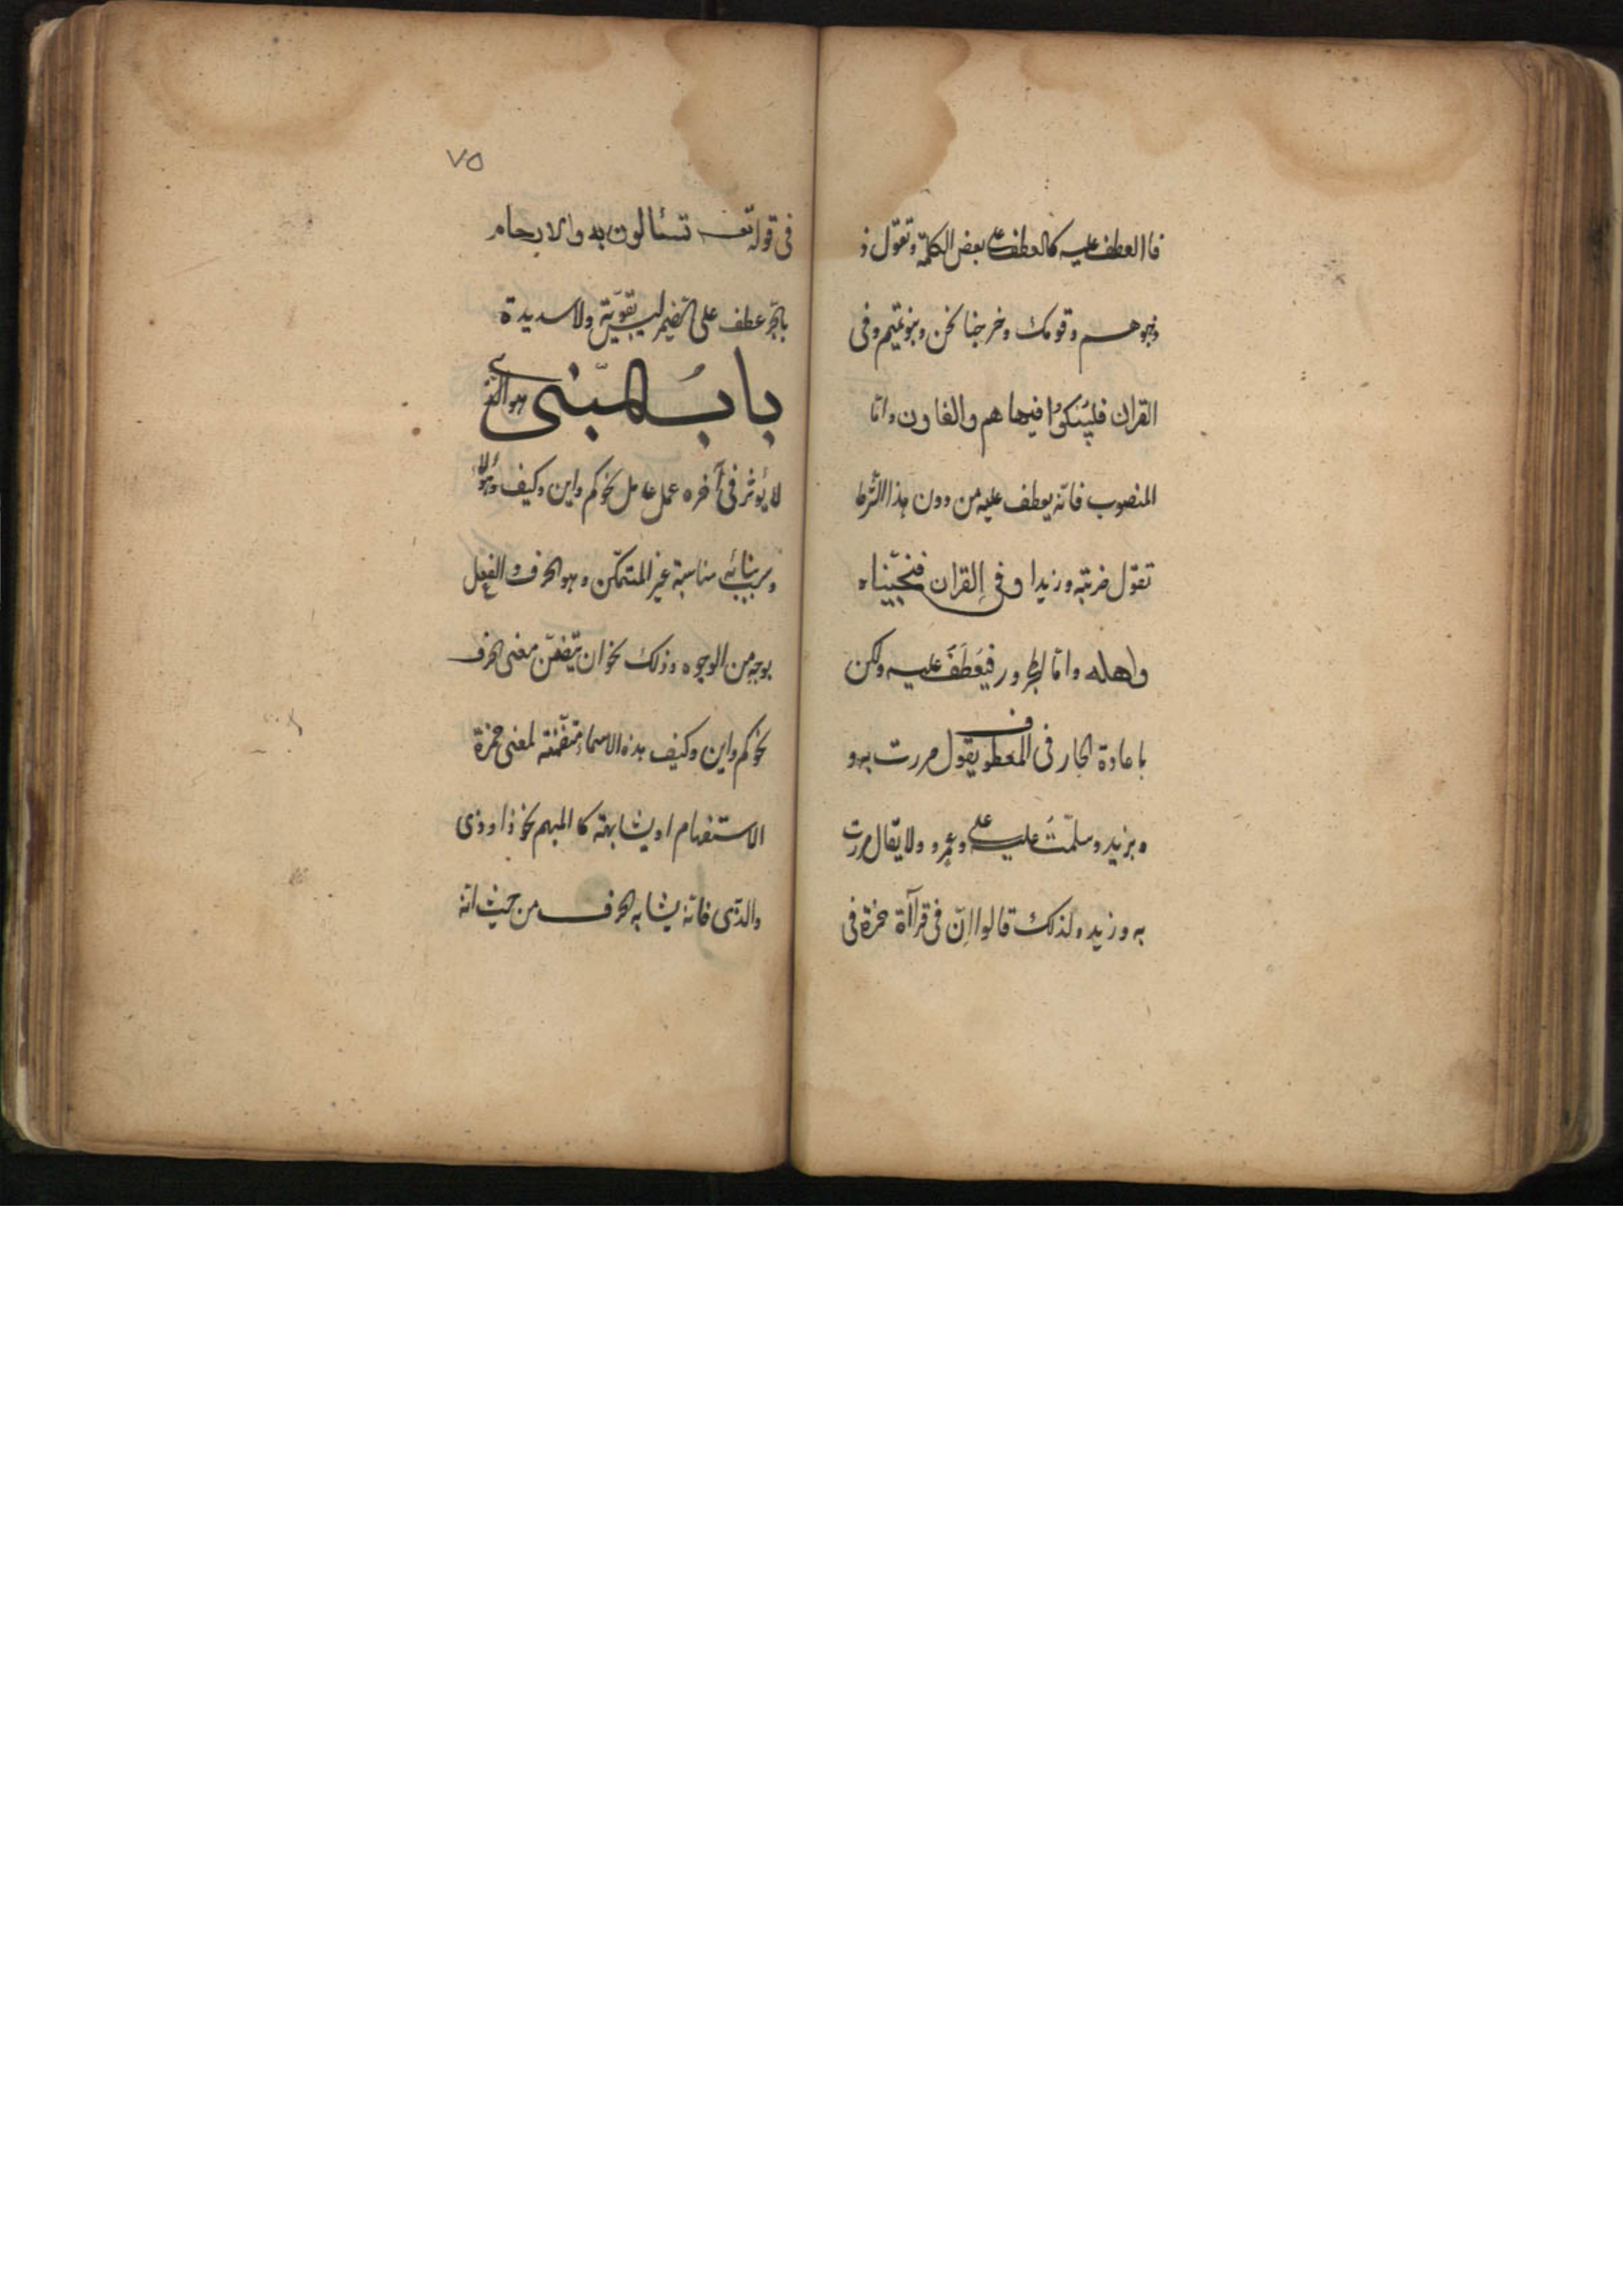 فاالعطف عليه كالعطف على بعض الكلمة وتقول ذ
هبوا هم وقومك وخرجنا نحن وبنو تميم وفى
القران فكبكبوا فيها هم والغاون واما
المنصوب فانه يعطف عليه من دون هذا الشرط
تقول ضربته وزيدا وفى القران فنجّيناه
واهله وامّا المجرور فيعطف عليه ولكن
باعادة الجار فى المعطوف يقول مررت به و
ه بزيد وسلمت عليه وعلى عمرو ولا يقال مررت
به وزيد ولذلك قالوا انّ فى قراآة حمزة فى
٧٥
فى قوله تعـ تسئالون به والارحام
بالجرّ عطف على الضمير ليس بقويّة ولا سديدة
بابُ المبنى هو الذى
لا يؤثر فى آخره عمل عامل نحو كم واين وكيف وهؤلاء
وسبب بنائه مناسبة غير المتمكّن وهو الحرف والفعل
بوجه من الوجوه وذلك نحو ان يتضمّن معنى الحرف
نحو كم واين وكيف هذه الاسماء متضمّنة لمعنى همزة
الاستفهام او يشابهه كا المبهم نحو ذا وذى
والذّى فانّه يشابه الحرف من حيث انه